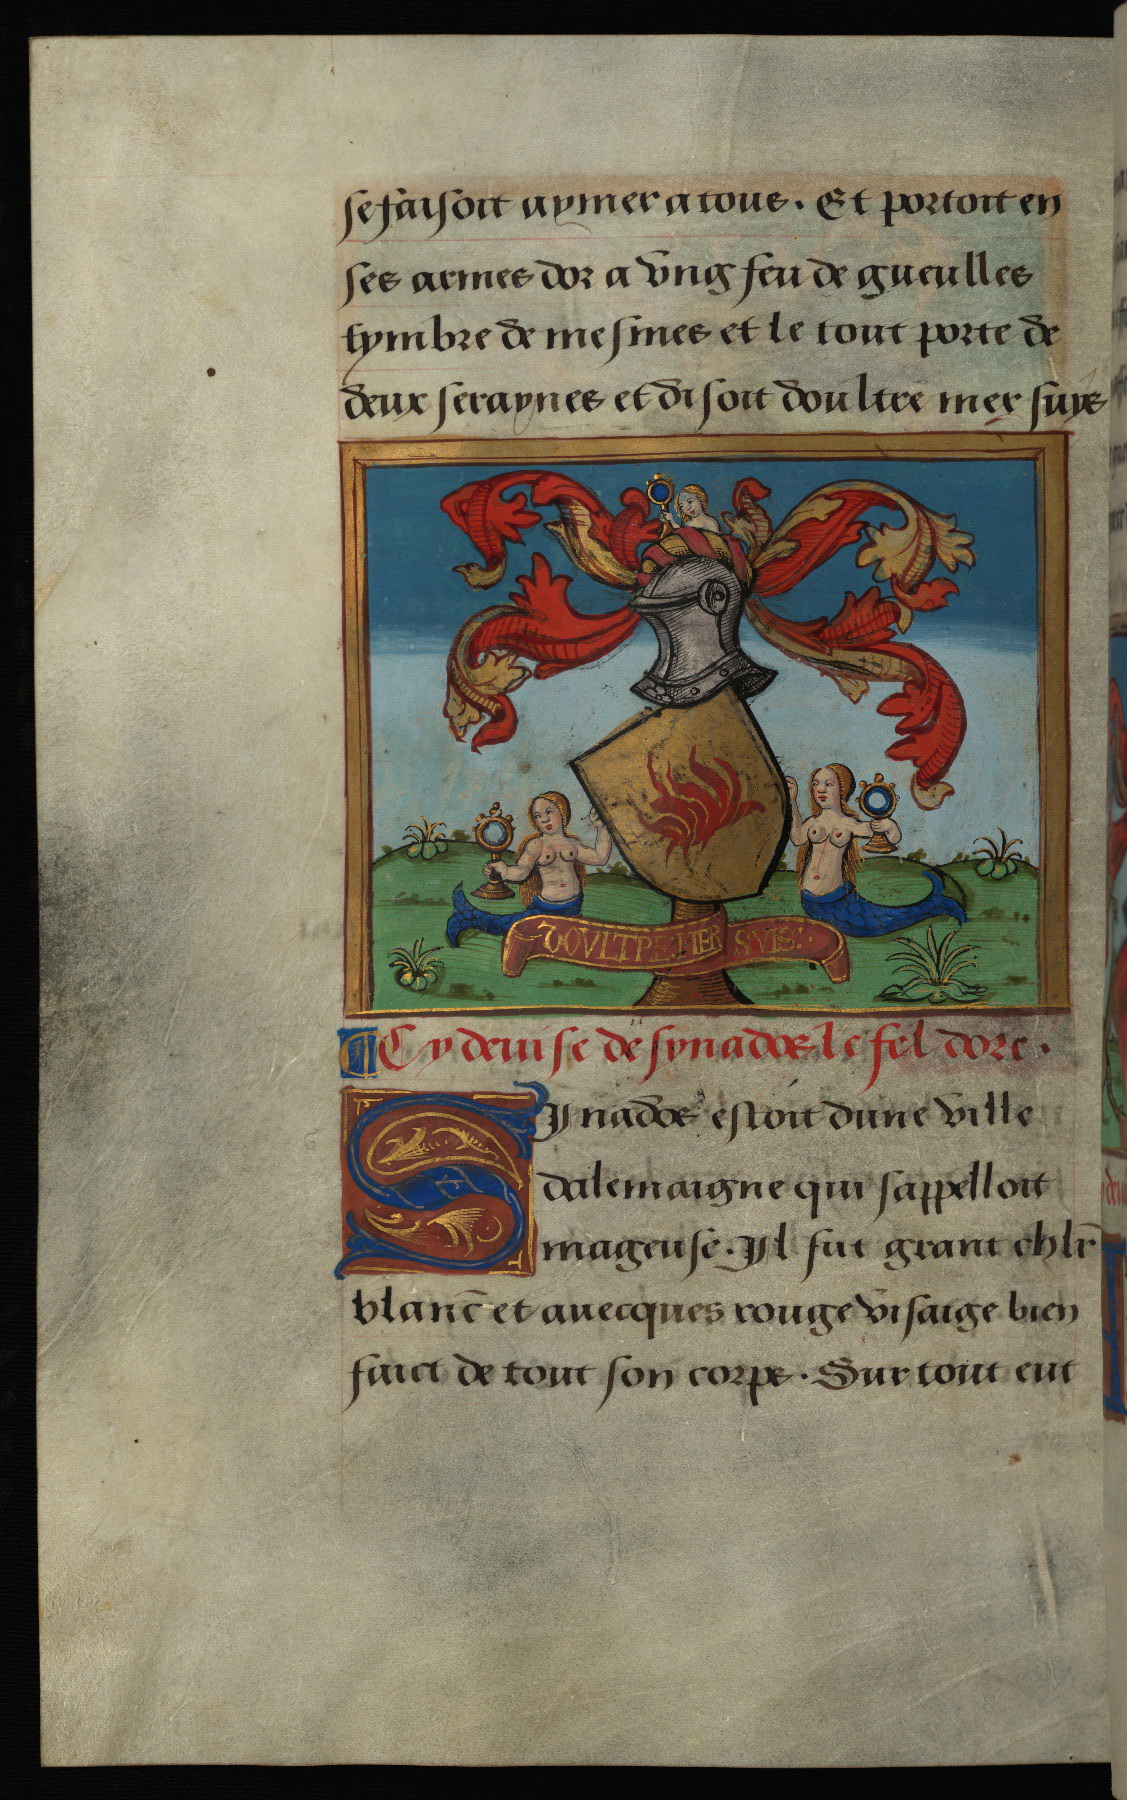 se faisoit aymer a tous. Et portoit en
ses armes dor a vng feu de gueulles
tymbre de mesmes et le tout porte de
deux seraynes et disoit doultre mer suys
DOVLTRE MER SVIS:
Cy deuise de synados le fel dore.
SInados estoit dune ville
dalemaigne qui sappelloit
mageuse. Il fut grant chlr̄
blanc̄ et auecques rouge visaige bien
faict de tout son corps. Sur tout eut